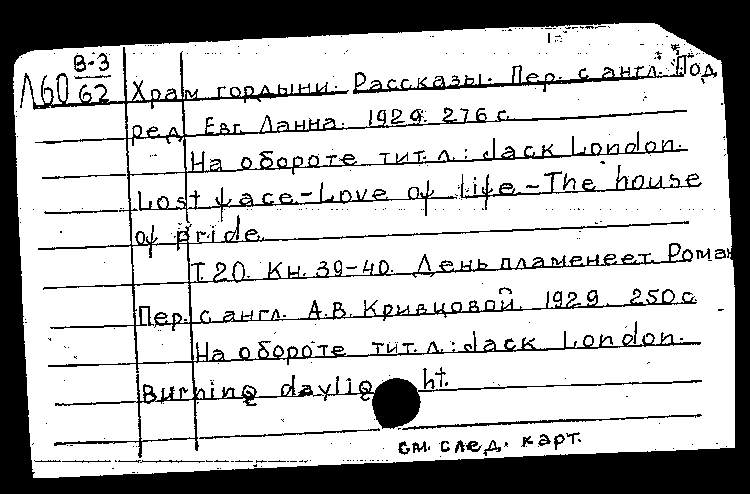 Л60 В-3/62
Храм гордыни. Рассказы. Пер. с англ. Под
ред. Евг. Ланна. 1929. 276 с.
На обороте тит. л.: Jack London.
Lost face-Love of life-The house
of pride.
Т.20. Кн. 39-40. День пламенеет. Роман
Пер. с англ. А.В. Кривцовой. 1929. 250 с.
На обороте тит. л.: Jack London.
Burning daylight.
см. след. карт.